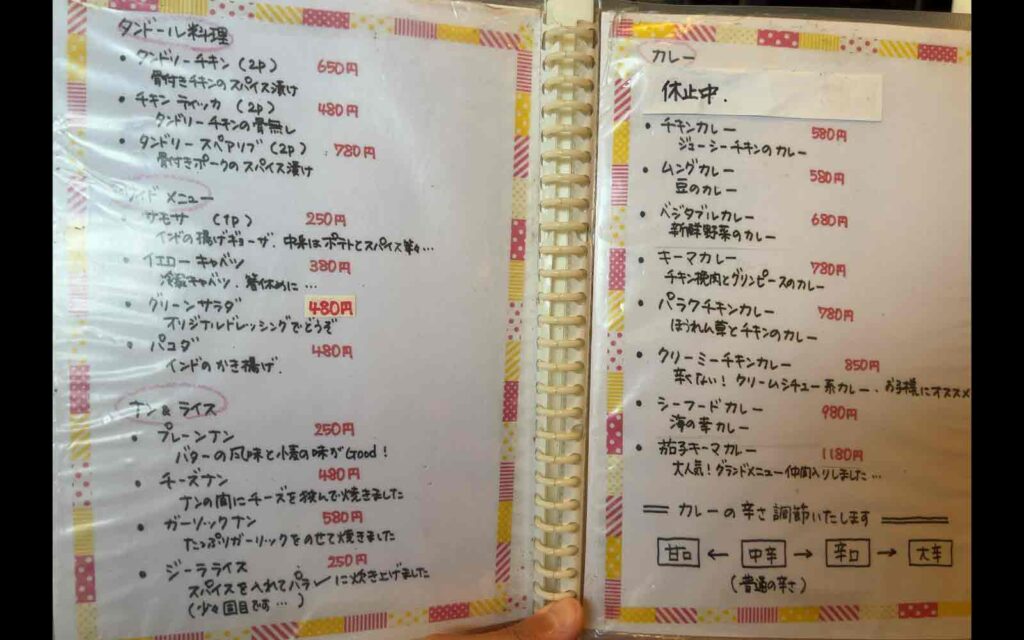 タンドール料理
• タンドリーチキン (2p) 650円
骨付きチキンのスパイス漬け
• チキン ティッカ (2p) 480円
タンドリーチキンの骨無し
• タンドリー スペアリブ (2p) 780円
骨付きポークのスパイス漬け
サイド メニュー
• サモサ (1p) 250円
インドの揚げギョーザ、中身はポテトとスパイス等々…
• イエロー キャベツ 380円
冷製キャベツ、箸休めに…
• グリーンサラダ 480円
オリジナルドレッシングでどうぞ
• パコダ 480円
インドのかき揚げ.
ナン & ライス
• プレーンナン 250円
バターの風味と小麦の味がGood!
• チーズナン 480円
ナンの間にチーズを挟んで焼きました
• ガーリックナン 580円
たっぷりガーリックをのせて焼きました
• ジーラライス 250円
スパイスを入れてパラッに炊き上げました
(少々固目です…)
カレー
休止中.
• チキンカレー 580円
ジューシーチキンのカレー
• ムングカレー 580円
豆のカレー
• ベジタブルカレー 680円
新鮮野菜のカレー
• キーマカレー 780円
チキン挽肉とグリンピースのカレー
• パラクチキンカレー 780円
ほうれん草とチキンのカレー
• クリーミーチキンカレー 850円
辛くない! クリームシチュー系カレー、お子様にオススメ
• シーフードカレー 980円
海の幸カレー
• 茄子キーマカレー 1180円
大人気! グランドメニュー仲間入りしました…
カレーの辛さ調節いたします
甘口 ← 中辛 → 辛口 → 大辛
(普通の辛さ)